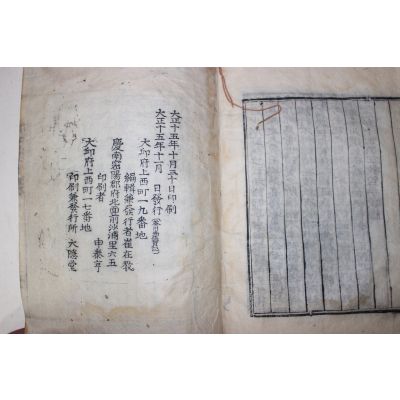 大正十五年十月三十日印刷
大正十五年十一月 日發行
大邱府上西町一九番地
編輯兼發行者崔在敎
慶南密陽郡府北面前沙浦里六五
印刷者 申泰
大邱府上西町一七番地
印刷兼發行所 大隱堂